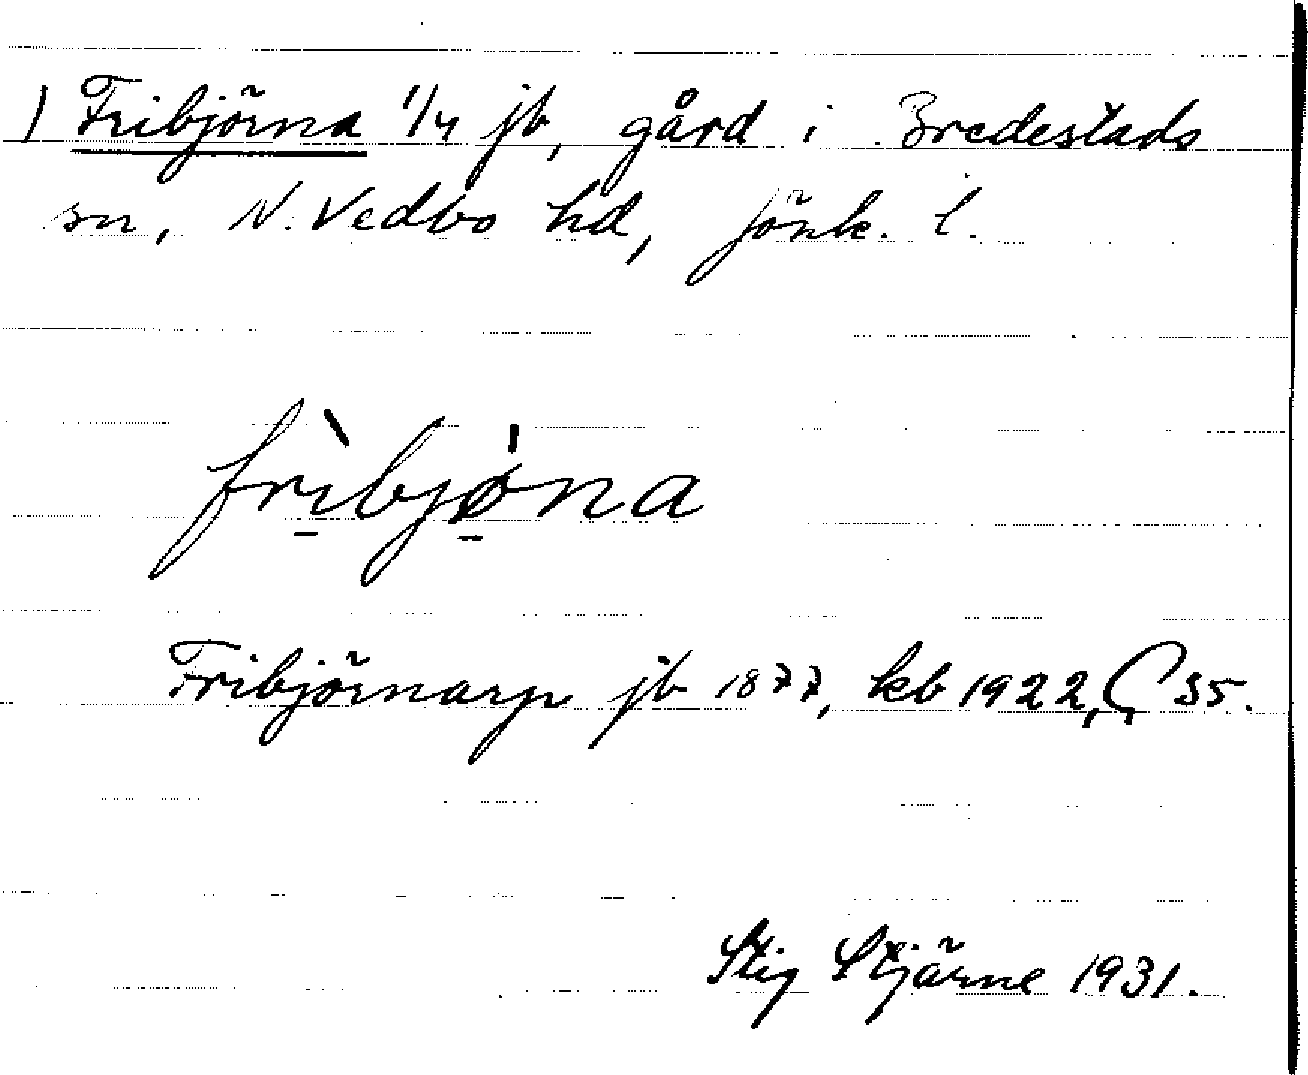 1) Fribjörna 1/4 jb, gård i Bredestads
sn, N. Vedbo hd, Jönk. l.
frì̱bjǿ̱na
Fribjörnarp jb 1877, kb 1922, G 35.
Stig Stjärne 1931.